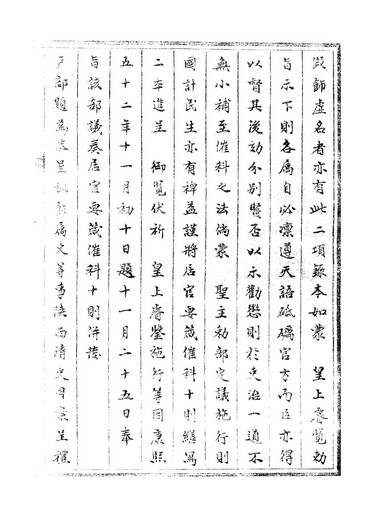 溺飾虛名者亦有此二項錄本如蒙　皇上睿覽勅
旨示下則各屬自必凛遵天語砥礪官方而臣亦得
以督其後劾分别賢否以示勸懲則於吏治一道不
無小補至催科之法倘蒙　聖主勅部定議施行則
國計民生亦有裨益謹將居官要箴催科十則繕寫
二本進呈　御覽伏祈　皇上睿鑒施行等因康熙
五十二年十一月初十日題十一月二十五日奉
旨該部議奏居官要箴催科十則併發
戶部題為 呈 屬吏等事陕西清吏司案呈禮